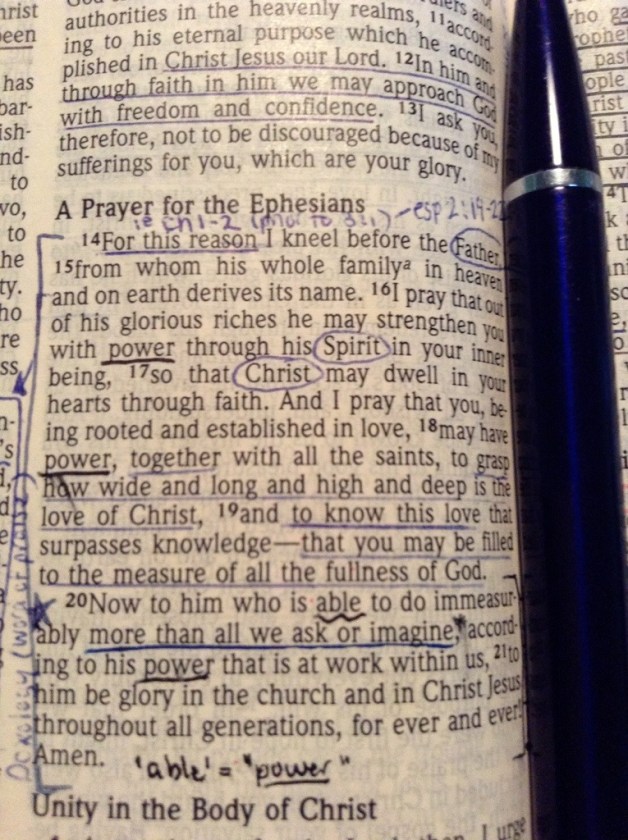 hrist
een
has
bar-
ish-
nd-
to
wo,
to
he
ty.
ho
re
ss
n-
's
d,
d
e
authorities in the heavenly realms, 11accord-
ing to his eternal purpose which he accom-
plished in Christ Jesus our Lord. 12In him and
through faith in him we may approach God
with freedom and confidence. 13I ask you,
therefore, not to be discouraged because of my
sufferings for you, which are your glory.
A Prayer for the Ephesians
ie ch 1-2 (prior to 3:1) - esp 2:19-22
14For this reason I kneel before the Father,
15from whom his whole familya in heaven
and on earth derives its name. 16I pray that out
of his glorious riches he may strengthen you
with power through his Spirit in your inner
being, 17so that Christ may dwell in your
hearts through faith. And I pray that you, be-
ing rooted and established in love, 18may have
power, together with all the saints, to grasp
how wide and long and high and deep is the
love of Christ, 19and to know this love that
surpasses knowledge—that you may be filled
to the measure of all the fullness of God.
20Now to him who is able to do immeasur-
ably more than all we ask or imagine, accord-
ing to his power that is at work within us, 21to
him be glory in the church and in Christ Jesus
throughout all generations, for ever and ever!
Amen.
'able' = "power"
Doxology (word of praise)
Unity in the Body of Christ
I urge